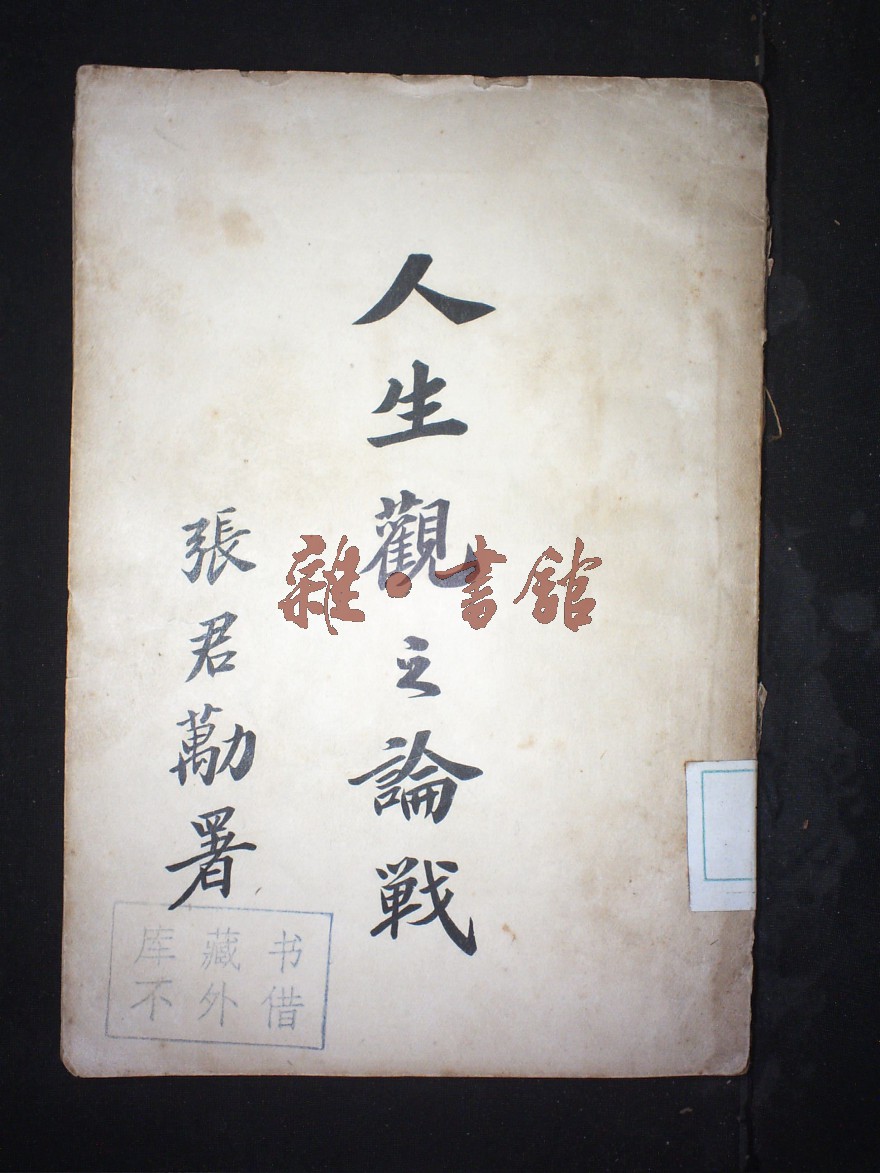 人生觀之論戦
張君勱署
雜·書館
库藏书
不外借